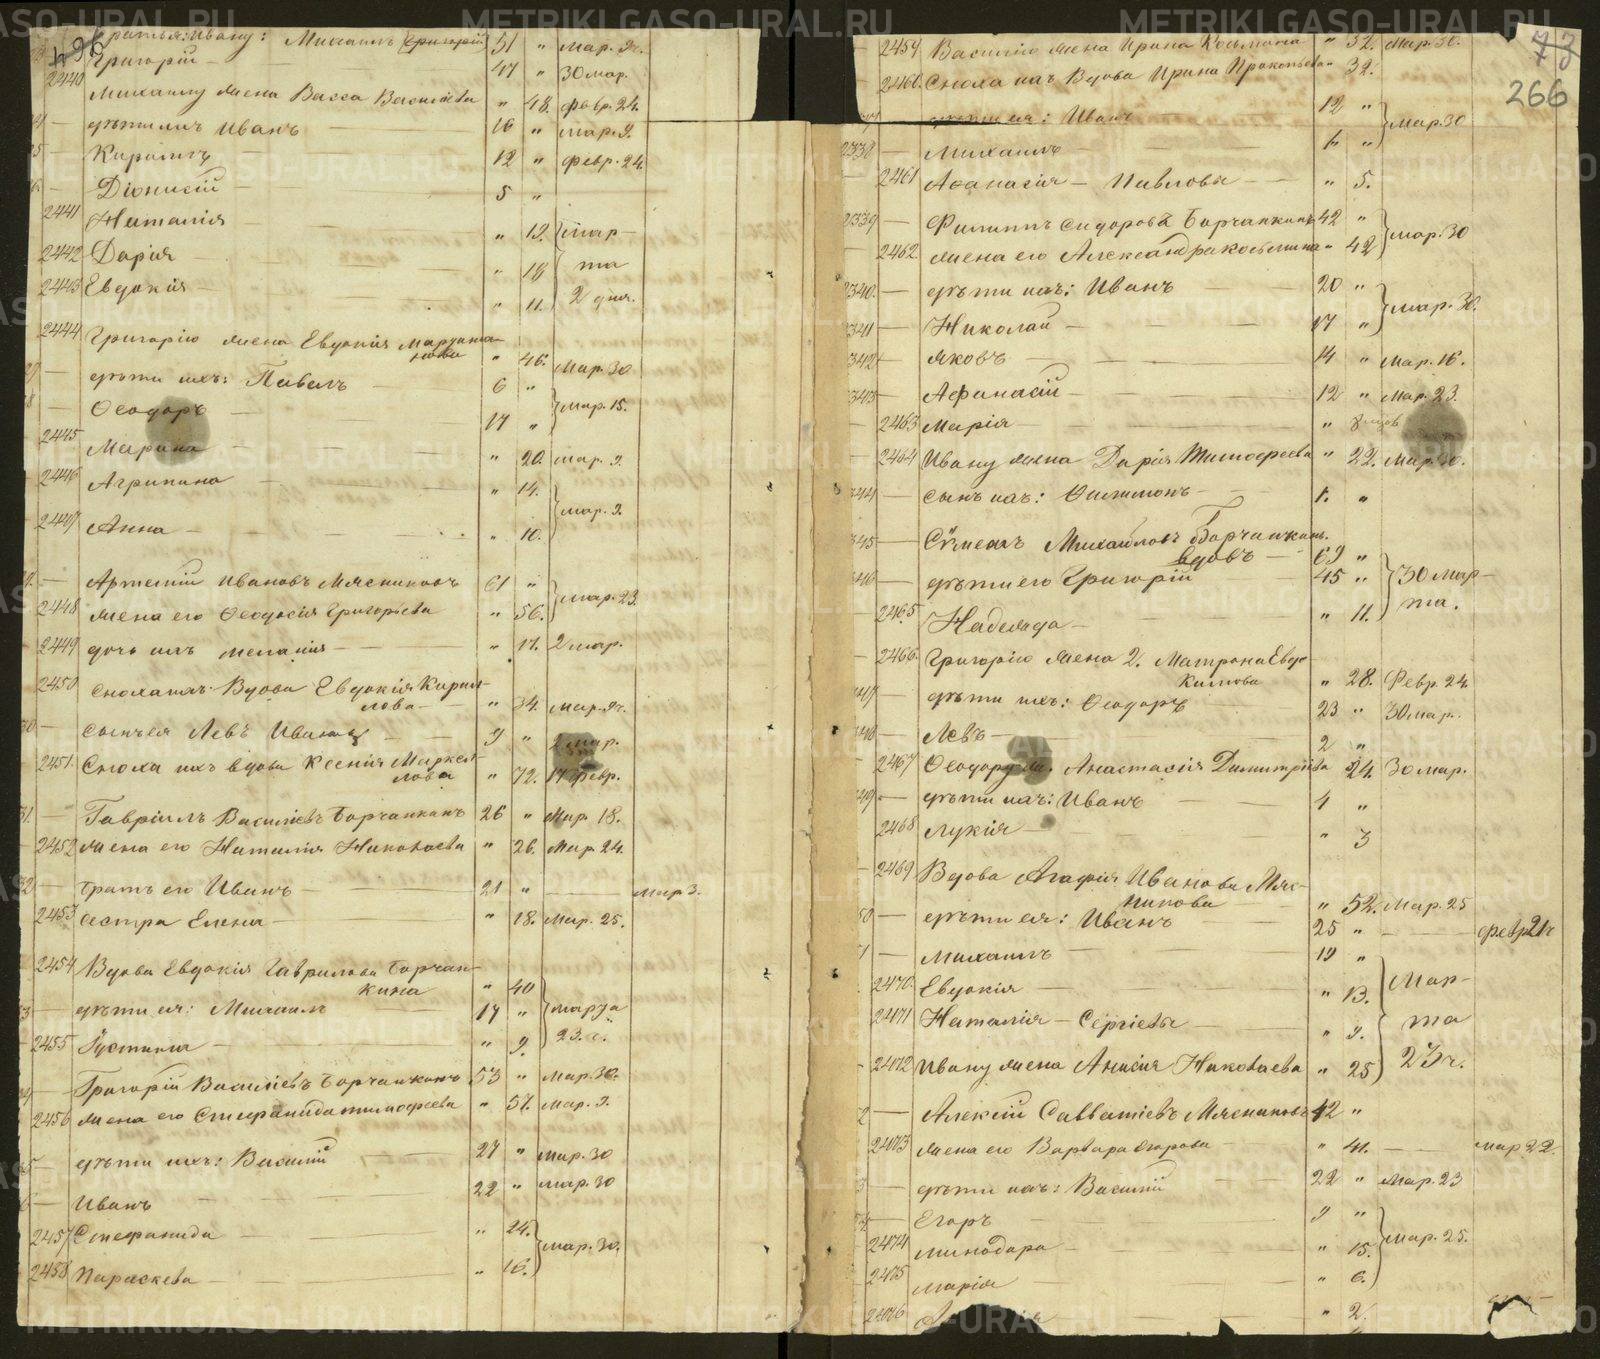 METRIKI.GASO-URAL.RU
братья: Ивану: Михаилъ 51 " Мар. 24.
Григорій — 47 " 30 мар.
2440 Михаилу жена Васса Васильева " 48. февр. 24.
дѣти ихъ Иванъ — 16 " мар. 2.
Кириллъ 12 " февр. 24.
Діонисій — 5 "
2441 Наталія — " 12. мар-
2442 Дарія — " 18 та
2443 Евдокія — " 11. 2 дня.
2444 Григорію жена Евдокія
" 46. Мар. 30
дѣти ихъ: Павелъ — 6 "
Ѳеодоръ — 17 " Мар. 15.
2445 Марина — " 20. мар. 2.
2446 Агрипина — " 14.
2447 Анна — " 10. мар. 2.
Артемій Ивановъ Мясниковъ 61 "
2448 жена его Ѳеодосія Григорьева " 56. мар. 23.
2449 дочь ихъ Меланія — " 17. 2 мар.
2450 сноха ихъ Вдова Евдокія Кирил-
лова — " 34. Мар. 24.
сынъ ея Левъ Ивановъ — 9 " 2 мар.
2451 Сноха ихъ вдова Ксенія Маркел-
лова " 72. 17 февр.
Гавріилъ Василіевъ Борчанкинъ 26 " Мар. 18.
2452 жена его Наталія Николаева " 26. Мар. 24.
братъ его Иванъ — 21 " — мар. 3.
2453 сестра Елена — " 18. Мар. 25.
2454 Вдова Евдокія Гаврилова Борчан-
кина " 40
дѣти ея: Михаилъ 17 " марта
2455 Іустина — " 9. 23.
Григорій Василіевъ Борчанкинъ 53 " Мар. 30.
2456 жена его Стефанида Тимофеева " 51. Мар. 9.
дѣти ихъ: Василій 27 " Мар. 30
Иванъ — 22 " Мар. 30
2457 Стефанида — " 24.
2458 Параскева — " 16. Мар. 30.
73
266
2459 Василію жена Ирина Косьмина " 32. Мар. 30.
2460 Сноха ихъ Вдова Ирина Прокопьева " 32.
дѣти ея: Иванъ 12 "
2338 Михаилъ — " Мар. 30
2461 Аѳанасія — Павлова — " 5.
2339 Филиппъ Сидоровъ Борчанкинъ 42 "
2462 жена его Александра Косьмина " 42 мар. 30
2340 дѣти ихъ: Иванъ 20 "
2341 Николай — 17 " Мар. 30.
2342 Яковъ — 14 " Мар. 16.
2343 Афанасій — 12 " Мар. 23.
2463 Марія — "
2464 Ивану жена Дарія Тимофеева " 22. Мар. 30.
сынъ ихъ: Филимонъ — 1. "
Сѵмеонъ Михайловъ Борчанкинъ.
вдовъ — 69 "
дѣти его Григорій 45 " 30 мар-
2465 Надежда — " 11. та.
2466 Григорію жена 2. Матрона Евдо-
кимова " 28. Февр. 24.
дѣти ихъ: Ѳеодоръ 23 " 30 мар.
Левъ — 2 "
2467 Ѳеодору ж. Анастасія Димитріева 24. 30 мар.
дѣти ихъ: Иванъ 4 "
2468 Лукія — " 3
2469 Вдова Агафія Иванова Мяс-
никова " 52. Мар. 25
дѣти ея: Иванъ 25 " — февр 24
Михаилъ 19 "
2470 Евдокія — " 13. Мар-
2471 Наталія — Сергіева — " 9. та
2472 Ивану жена Анисія Николаева " 25 23 ч.
Алексій Савватіевъ Мясниковъ 42 "
2473 жена его Варвара Егорова " 41. — мар. 22.
дѣти ихъ: Василій 22 " Мар. 23
Егоръ 9 "
2474 Минодора " 15. мар. 25.
2475 Марія " 6.
2476 " 2.